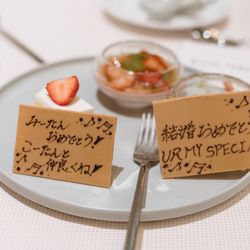 みーたん♪♪
おめでとう!
こーたんと
仲良くね♪
結婚おめでとう
UR MY SPECI